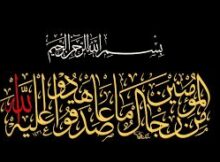 بسم الله الرحمن الرحيم
من المؤمنين رجال صدقوا ما عاهدوا الله عليه